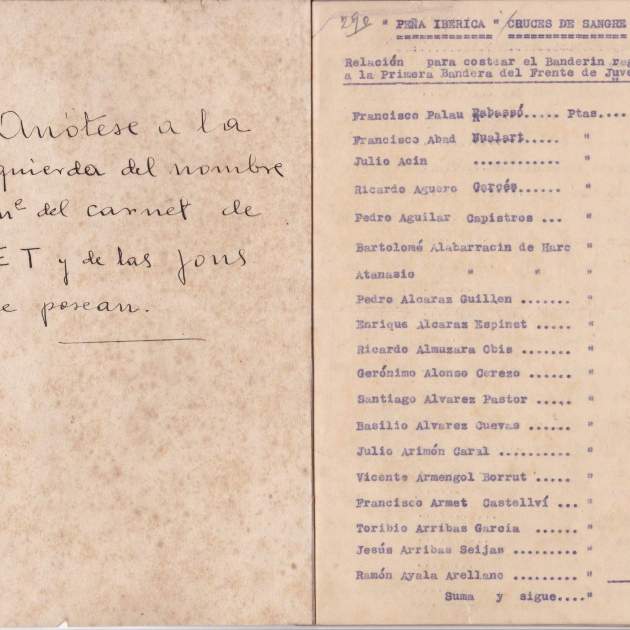 Anótese a la
quierda del nombre
nº del carnet de
ET y de las Jons
e posean.
29e
" PEÑA IBERICA " CRUCES DE SANGRE
Relación para costear el Banderin reg
a la Primera Bandera del Frente de Juve
Francisco Palau Rabassó..... Ptas....
Francisco Abad Nualart..... "
Julio Acin ............ "
Ricardo Aguero Garcés...... "
Pedro Aguilar Capistros ... "
Bartolomé Alabarracin de Haro "
Atanasio " " "
Pedro Alcaraz Guillen ....... "
Enrique Alcaraz Espinet ..... "
Ricardo Almuzara Obis ....... "
Gerónimo Alonso Cerezo ...... "
Santiago Alvarez Pastor ..... "
Basilio Alvarez Cuevas ...... "
Julio Arimón Caral .......... "
Vicente Armengol Borrut ..... "
Francisco Armet Castellví ... "
Toribio Arribas Garcia ...... "
Jesús Arribas Seijas ......... "
Ramón Ayala Arellano ......... "
Suma y sigue...."